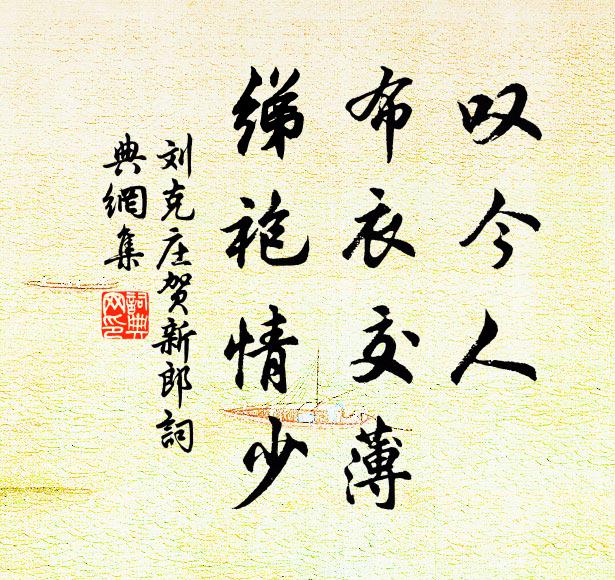 叹今人
布衣交薄
绨袍情少
刘克庄贺新郎
詞詞典網集
詞典
网印